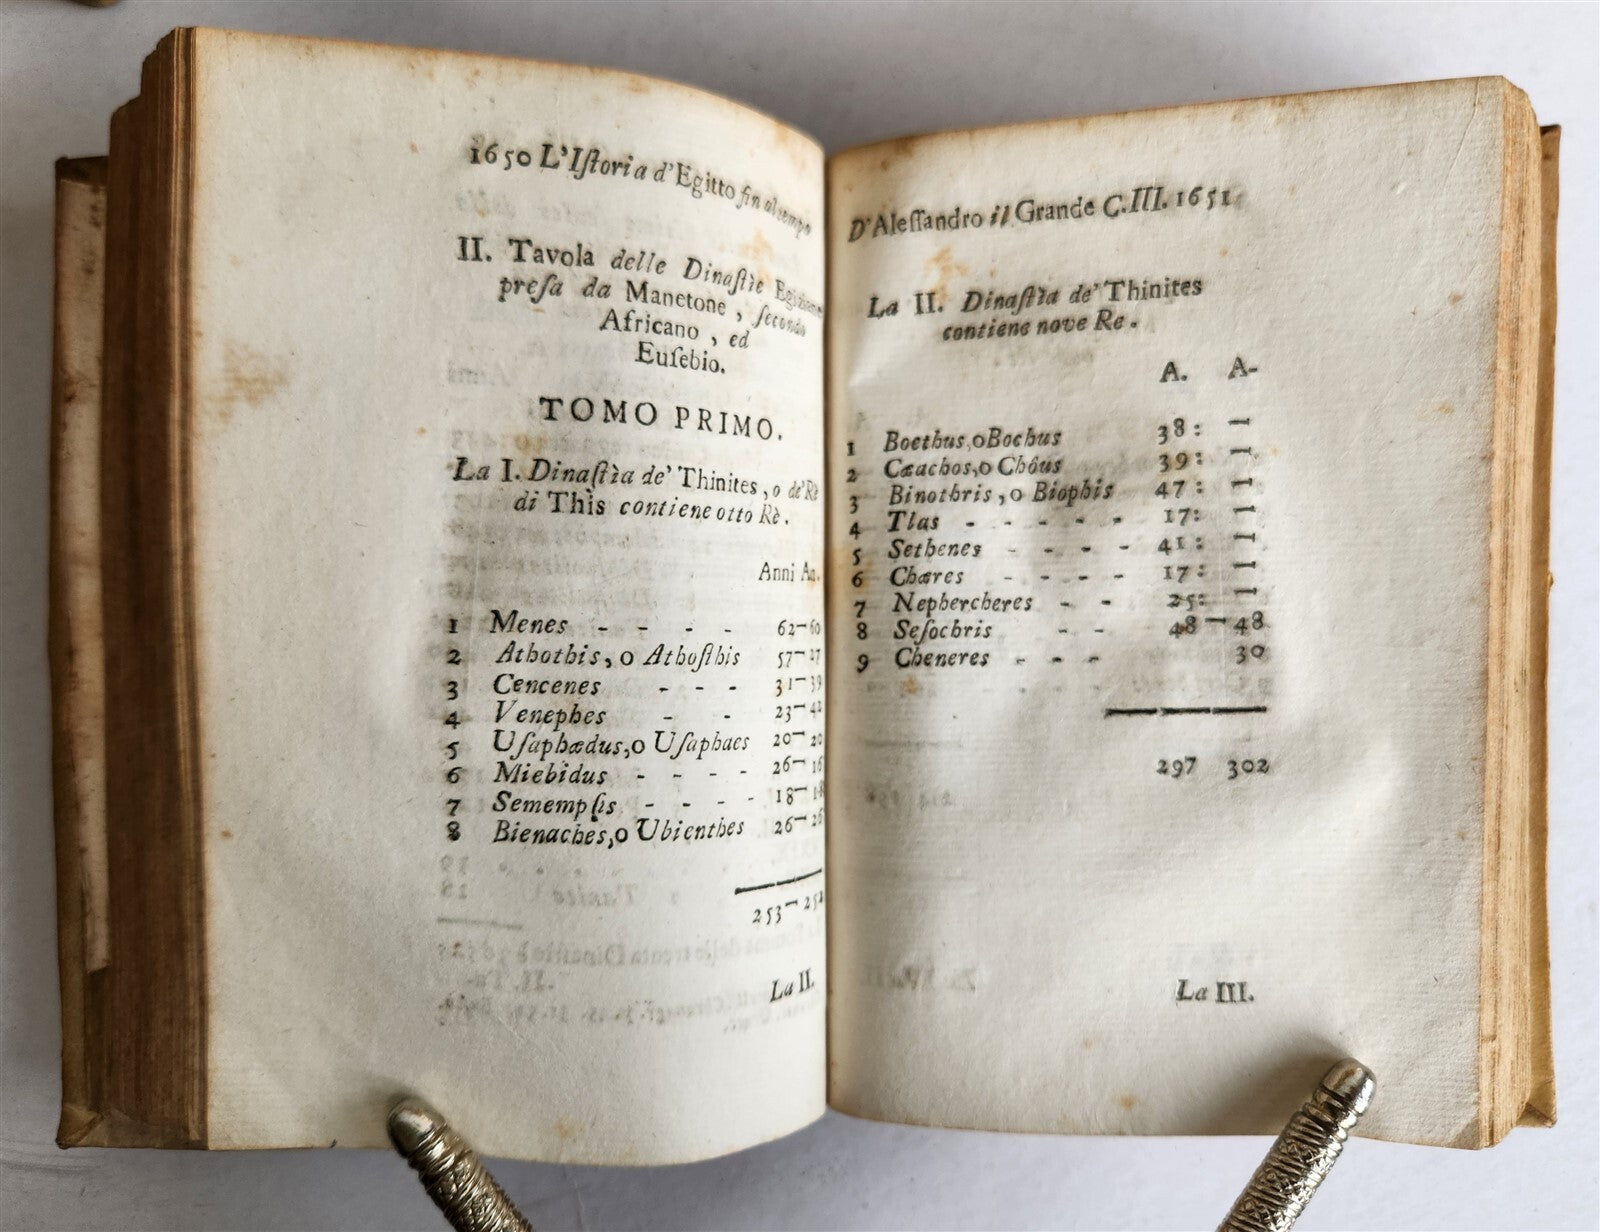 1650 L'Iſtoria d'Egitto fin al tempo
II. Tavola delle Dinaſtìe
preſa da Manetone, ſecondo
Africano, ed
Euſebio.
TOMO PRIMO.
La I. Dinaſtìa de' Thinites, o de' Rè
di This contiene otto Rè.
Anni An.
1 Menes - - - - 62-60
2 Athothis, o Athoſthis 57-27
3 Cencenes - - - 31-39
4 Venephes - - 23-42
5 Uſaphædus, o Uſaphaes 20-20
6 Miebidus - - - - 26-16
7 Sememſis - - - - 18-18
8 Bienaches, o Ubienthes 26-26
253-252
La II.
D'Aleſſandro il Grande C.III. 1651
La II. Dinaſtìa de' Thinites
contiene nove Re.
A. A-
1 Boethus, o Bochus 38: —
2 Cæachos, o Chôus 39: —
3 Binothris, o Biophis 47: —
4 Tlas - - - - - 17: —
5 Sethenes - - - - 41: —
6 Chæres - - - - 17: —
7 Nephercheres - - 25: —
8 Seſochris - - 48-48
9 Cheneres - - - 30
297 302
La III.